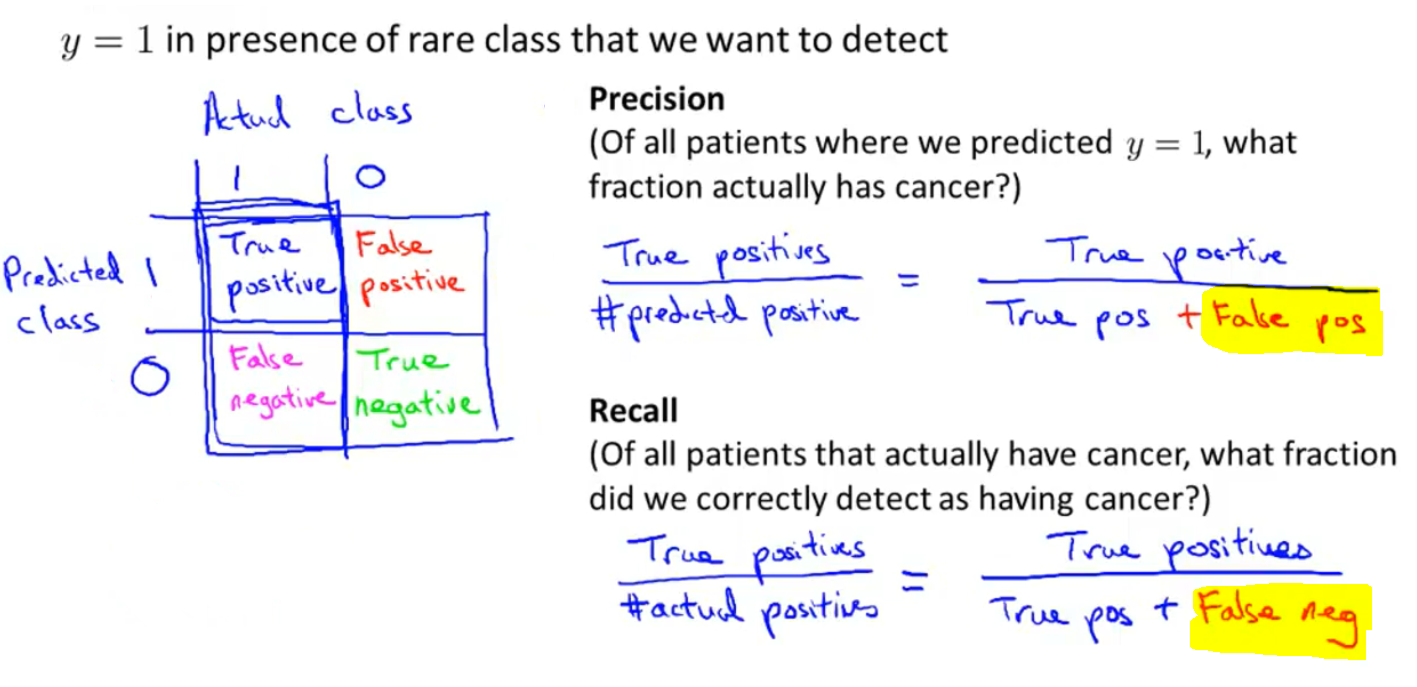 y = 1 in presence of rare class that we want to detect
Actual class
1 0
Predicted class 1
0
True positive
False positive
False negative
True negative
Precision
(Of all patients where we predicted y = 1, what
fraction actually has cancer?)
True positives
#predicted positive
=
True positive
True pos + False pos
Recall
(Of all patients that actually have cancer, what fraction
did we correctly detect as having cancer?)
True positives
#actual positives
=
True positives
True pos + False neg